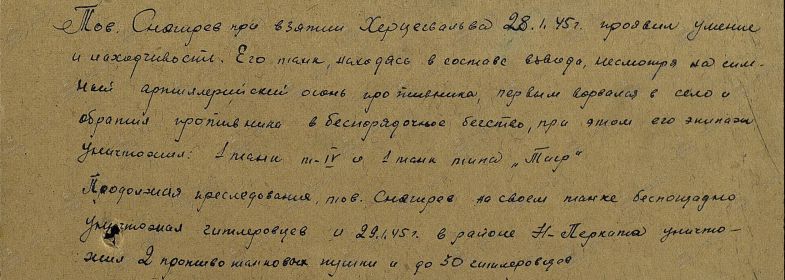 Тов. Снегирев при взятии Херцегфальва 28.1.45г. проявил умение
и находчивость. Его танк, находясь в составе взвода, несмотря на силь-
ный артиллерийский огонь противника, первым ворвался в село и
обратил противника в беспорядочное бегство, при этом его экипаж
уничтожил: 1 танк т-IV и 1 танк типа „Тигр“
Продолжая преследования, тов. Снегирев на своем танке беспощадно
уничтожал гитлеровцев и 29.1.45г. в районе Н-Перката уничто-
жил 2 противотанковых пушки и до 50 гитлеровцев